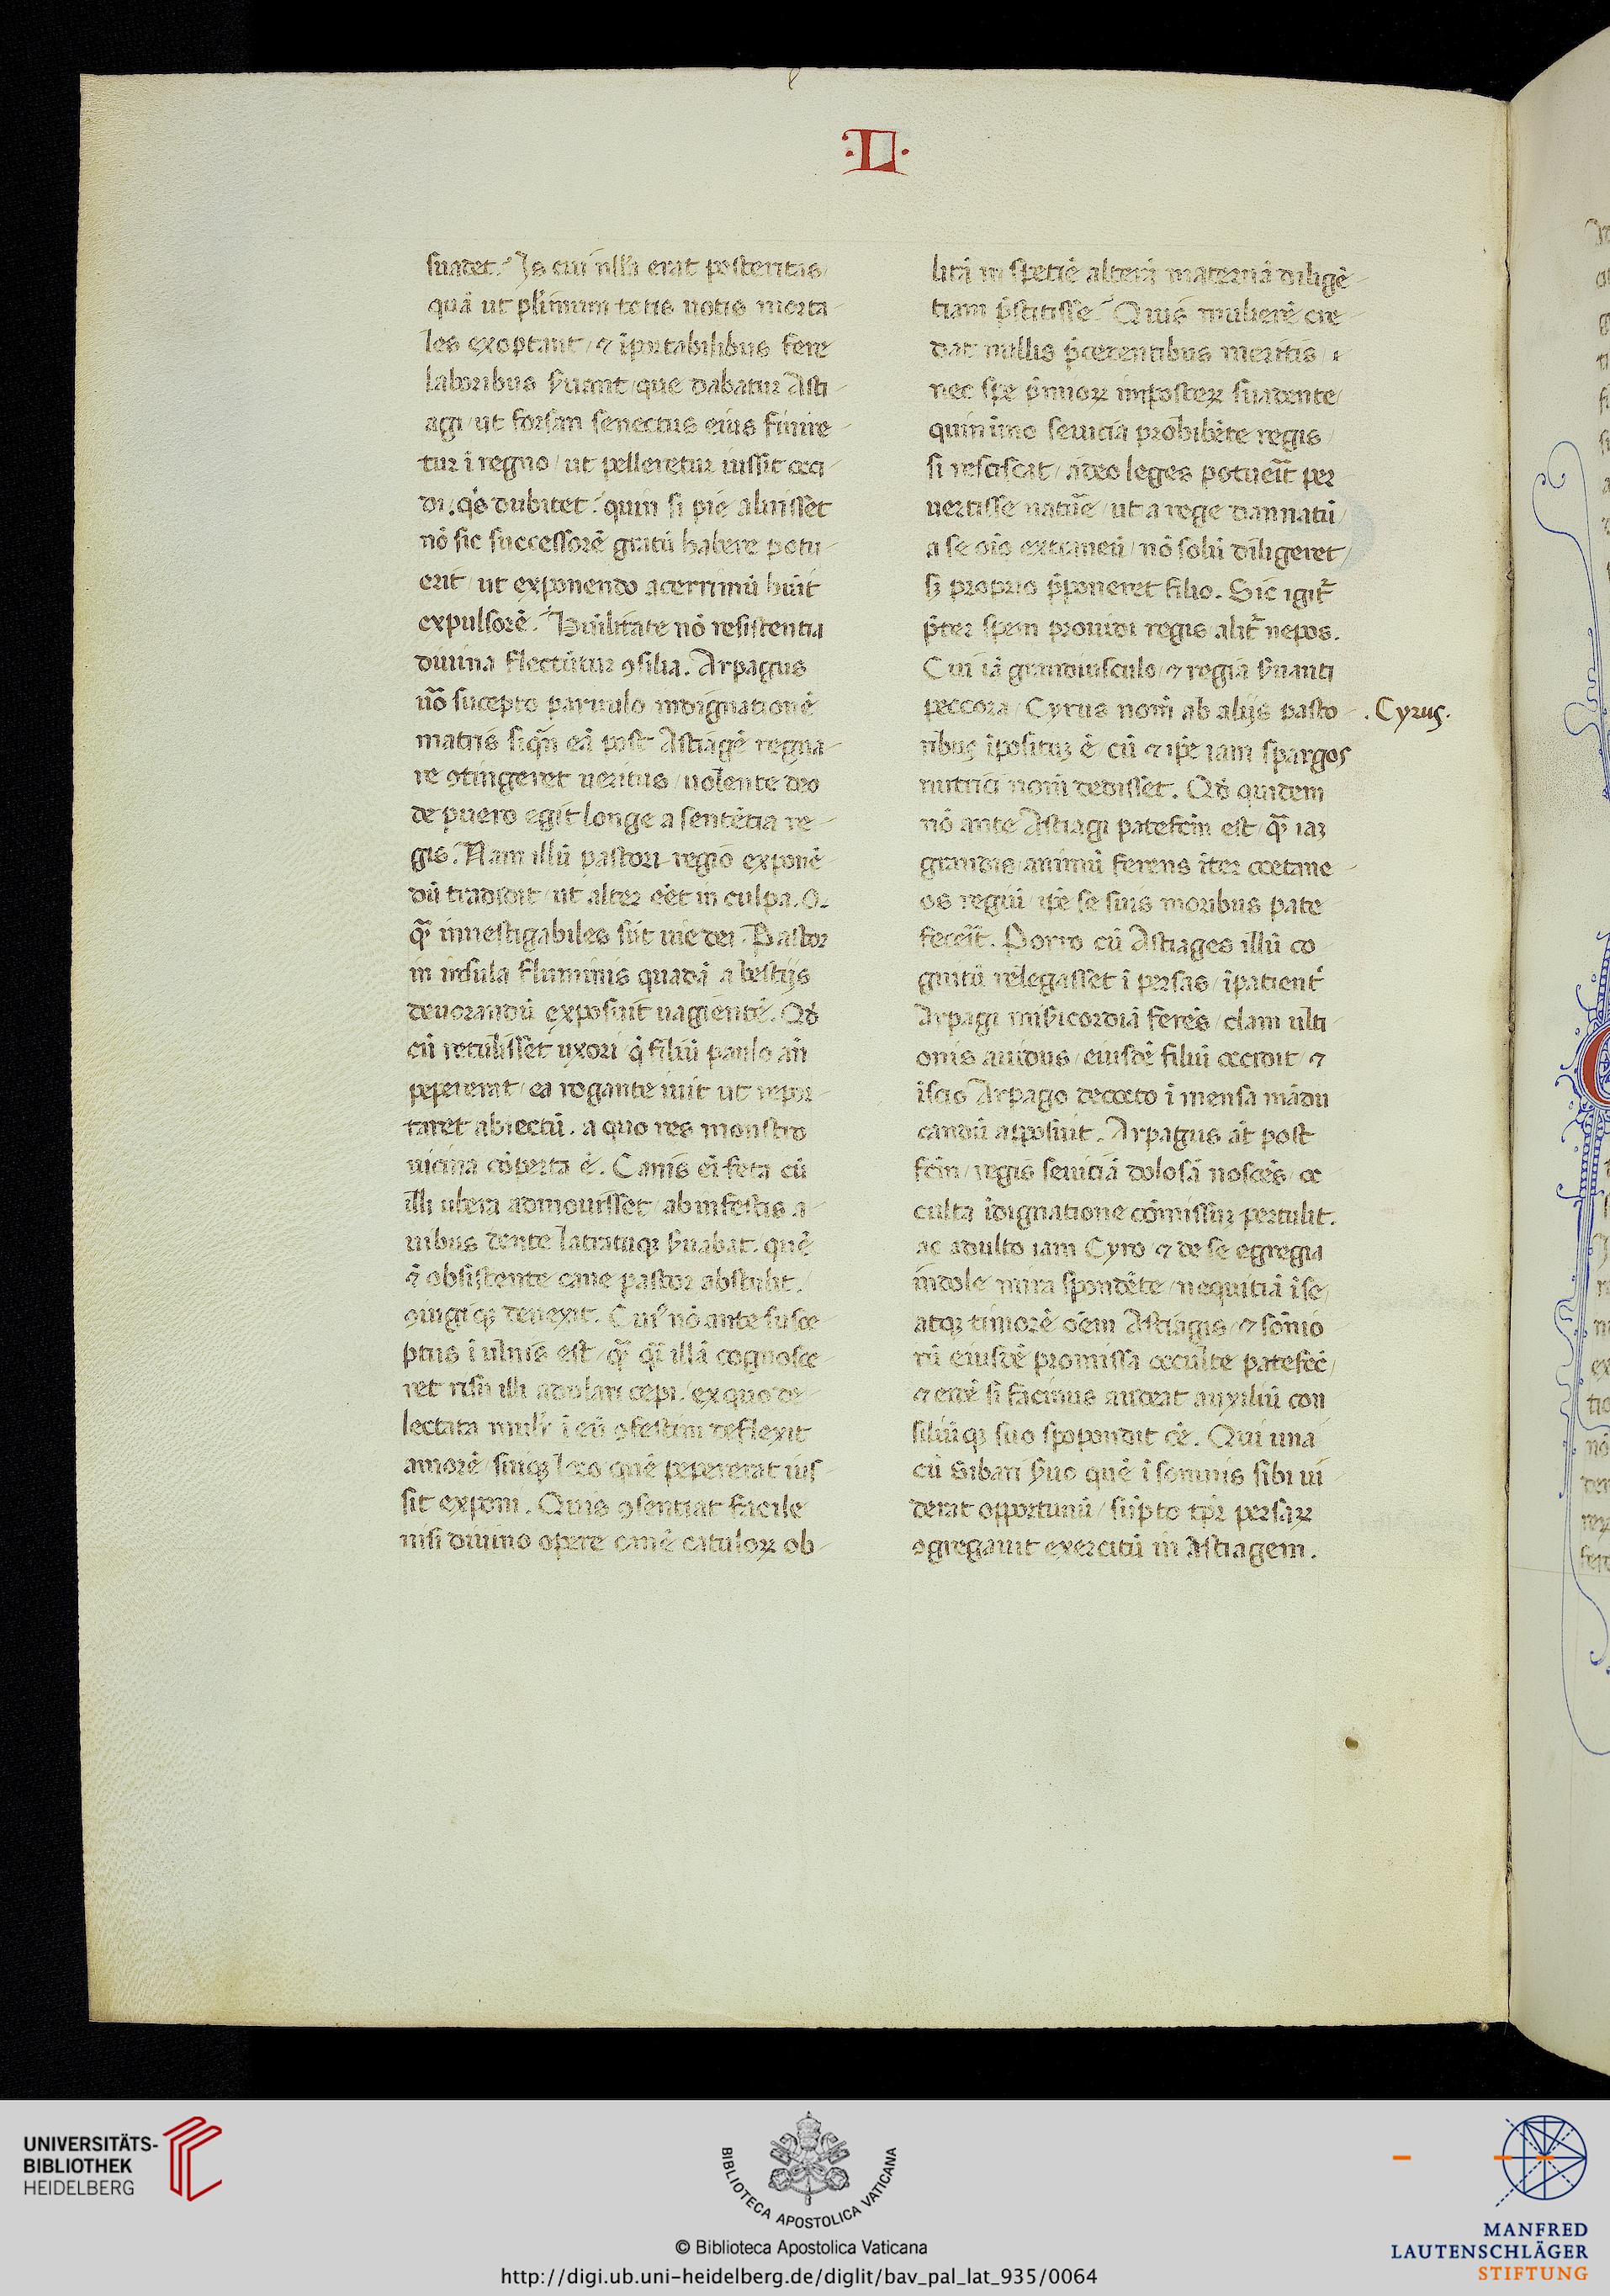 ·L·
suadet. Is cui nulla erat posteritas
quā ut plimum totis uotis morta-
les exoptant / ⁊ īportabilibus fere
laboribus ẜuant / que dabatur Asti-
agi / ut forsan senectus eius finire-
tur ī regno / ut pelleretur iussit occi-
di. qͥs dubitet? quin si pie aluisset
nō sic successorē gratū habere potu-
erit / ut exponendo acerrimū huīt
expulsorē. Huīlitate nō resistentia
diuina flectūtur ꝯsilia. Arpagus
uō sucepto paruulo indignationē
matris siqn̄ eā post Astiagē regna-
re ꝯtingeret ueritus / uolente deo
de puero egit longe a sentētia re-
gis. Nam illū pastori regio exponē-
dū tradidit / ut alter eēt in culpa. O.
qͣ inuestigabiles sūt uie dei. Pastor
in insula fluminis quadā a bestijs
deuorandū exposuit uagientē. Qď
cū retulisset uxori / q̄ filiū paulo an̄
pepererat / ea rogante iuit ut repor-
taret abiectū. a quo res monstro
uicina cōperta ē. Canis ei feta cū
illi ubera admouisset / ab infestis a-
uibus dente latratuqꝫ ẜuabat. quē
⁊ obsistente cane pastor abstulit /
ꝯiugiqꝫ deuexit. Cuiꝰ nō ante susce-
ptus ī ulnis est / qͣ qͥ illā cognosce-
ret risu illi adulari cepit / ex quo de-
lectata mulr̄ ī eū ꝯfestim deflexit
amorē / suiqꝫ loco quē pepererat ius-
sit exponi. Quis ꝯsentiat facile
nisi diuino opere canē catuloꝝ ob-
litā in spetiē alterā maternā diligē-
tiam p̄stitisse? Quis mulierē cre-
dat nullis p̄cedentibus meritis /
nec spe p̄mioꝝ imposteꝝ suadente /
quinimo seuitia prohibēte regis /
si resciscat / adeo leges potueīt per
uertisse nature / ut a rege dannatū /
a se oīo extraneū / nō solū diligeret /
sꝫ proprio p̄poneret filio. Sic igit᷑
p̄ter spem prouidi regis alit᷑ nepos.
Cui iā grandiusculo / ⁊ regia ẜuanti
peccora / Cyrus nom̄ ab alijs pasto-
ribus īpositum ē / cū ⁊ ip̄e iam spargos
nutricī nom̄ dedisset. Qď quidem
nō ante Astiagi patefctm̄ est / qͣ iaꝫ
grandis / animū ferens īter coetane-
os regiū / ip̄e se suis moribus pate-
feceīt. Porro cū Astiages illū co-
gnitū relegasset ī persas / īpatient᷑
Arpagi mis̄icordiā ferēs / clam ulti-
onis auidus / eiusdē filiū occidit / ⁊
īscio Arpago decocto ī mensa mādu
candū apposuit. Arpagus āt post
fctm̄ / regis seuitiā dolosā noscēs / oc
culta īdignatione cōmissuꝝ pertulit.
ac adulto iam Cyro ⁊ de se egregia
indole mira spondēte / nequitiā ī se /
atqꝫ timorē oēm Astiagis / ⁊ sōnio
rū eiusdē promissa occulte patefēc /
⁊ eūdē si facinus audeat auxiliū con
siliūqꝫ suo spopondit cē. Qui una
cū Sibari ẜuo quē ī somnis sibi ui-
derat opportunū / sūpto tpr̄ persaꝝ
ꝯgregauit exercitū in Astiagem.
. Cyrus.
UNIVERSITÄTS-
BIBLIOTHEK
HEIDELBERG
BIBLIOTECA APOSTOLICA VATICANA
© Biblioteca Apostolica Vaticana
http://digi.ub.uni-heidelberg.de/diglit/bav_pal_lat_935/0064
MANFRED
LAUTENSCHLÄGER
STIFTUNG